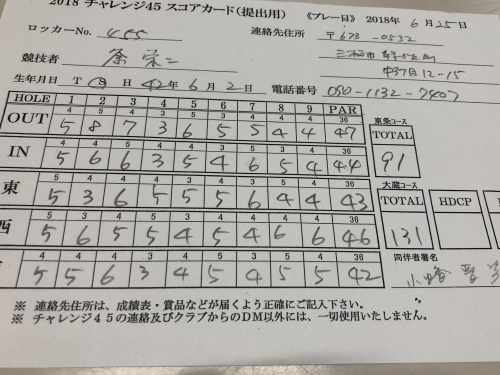 2018 チャレンジ45 スコアカード(提出用) 《プレー日》 2018年 6月25日
ロッカーNo. 455 連絡先住所 〒673-0532
競技者 栄二 三木市
中3丁目12-15
生年月日 T H 42年 6月 2日 電話番号 090-1132-7407
HOLE 1 2 3 4 5 6 7 8 9 PAR
4 5 4 3 4 5 3 4 4 36 東条コース
OUT 5 8 7 3 6 5 5 4 4 47 TOTAL
IN 5 6 6 3 5 4 6 5 4 44 91
大蔵コース
東 5 3 6 5 5 5 6 4 4 43 TOTAL HDCP
西 5 6 5 5 4 5 4 6 6 46 131
5 5 6 3 4 5 4 5 5 42 同伴者署名
※ 連絡先住所は、成績表・賞品などが届くよう正確にご記入下さい。
※ チャレンジ45の連絡及びクラブからのDM以外には、一切使用いたしません。